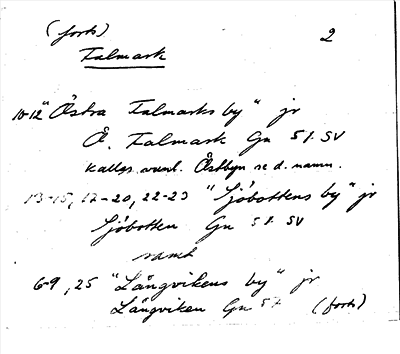 (forts)
2
Falmark
10-12 "Östra Falmarks by" jr
Ö. Falmark Gn 51. SV
kallas avenl. Östbyn se d. namn.
13-15, 17-20, 22-23 "Sjöbottens by" jr
Sjöbotten Gn 51 SV
samt
6-9, 25 "Långvikens by" jr
Långviken Gn 57 (forts)